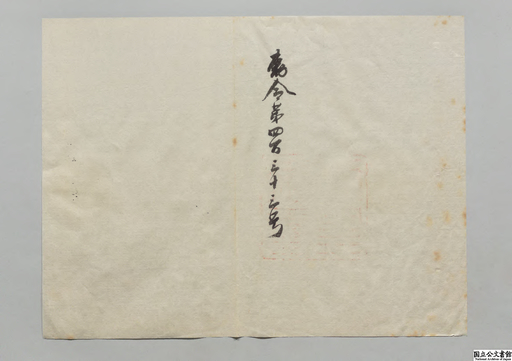 勅令第四百三十三号
国立公文書館
National Archives of Japan